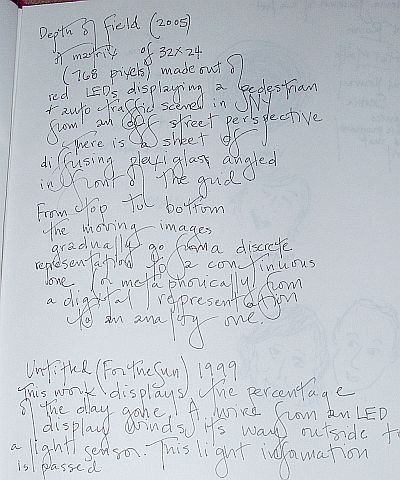 Depth of Field (2005)
A matrix of 32x24
(768 pixels) made out of
red LEDs displaying a pedestrian
+ auto traffic scened in NY
from an off street perspective
There is a sheet of
diffusing plexiglass angled
in front of the grid
From top to bottom
the moving images
gradually go from a discrete
representation to a continuous
one or metaphorically from
a digital representation
to an analog one.
Untitled (For the Sun) 1999
This work displays the percentage
of the day gone. A wire from an LED
display winds its way outside to
a light sensor. This light information
is passed